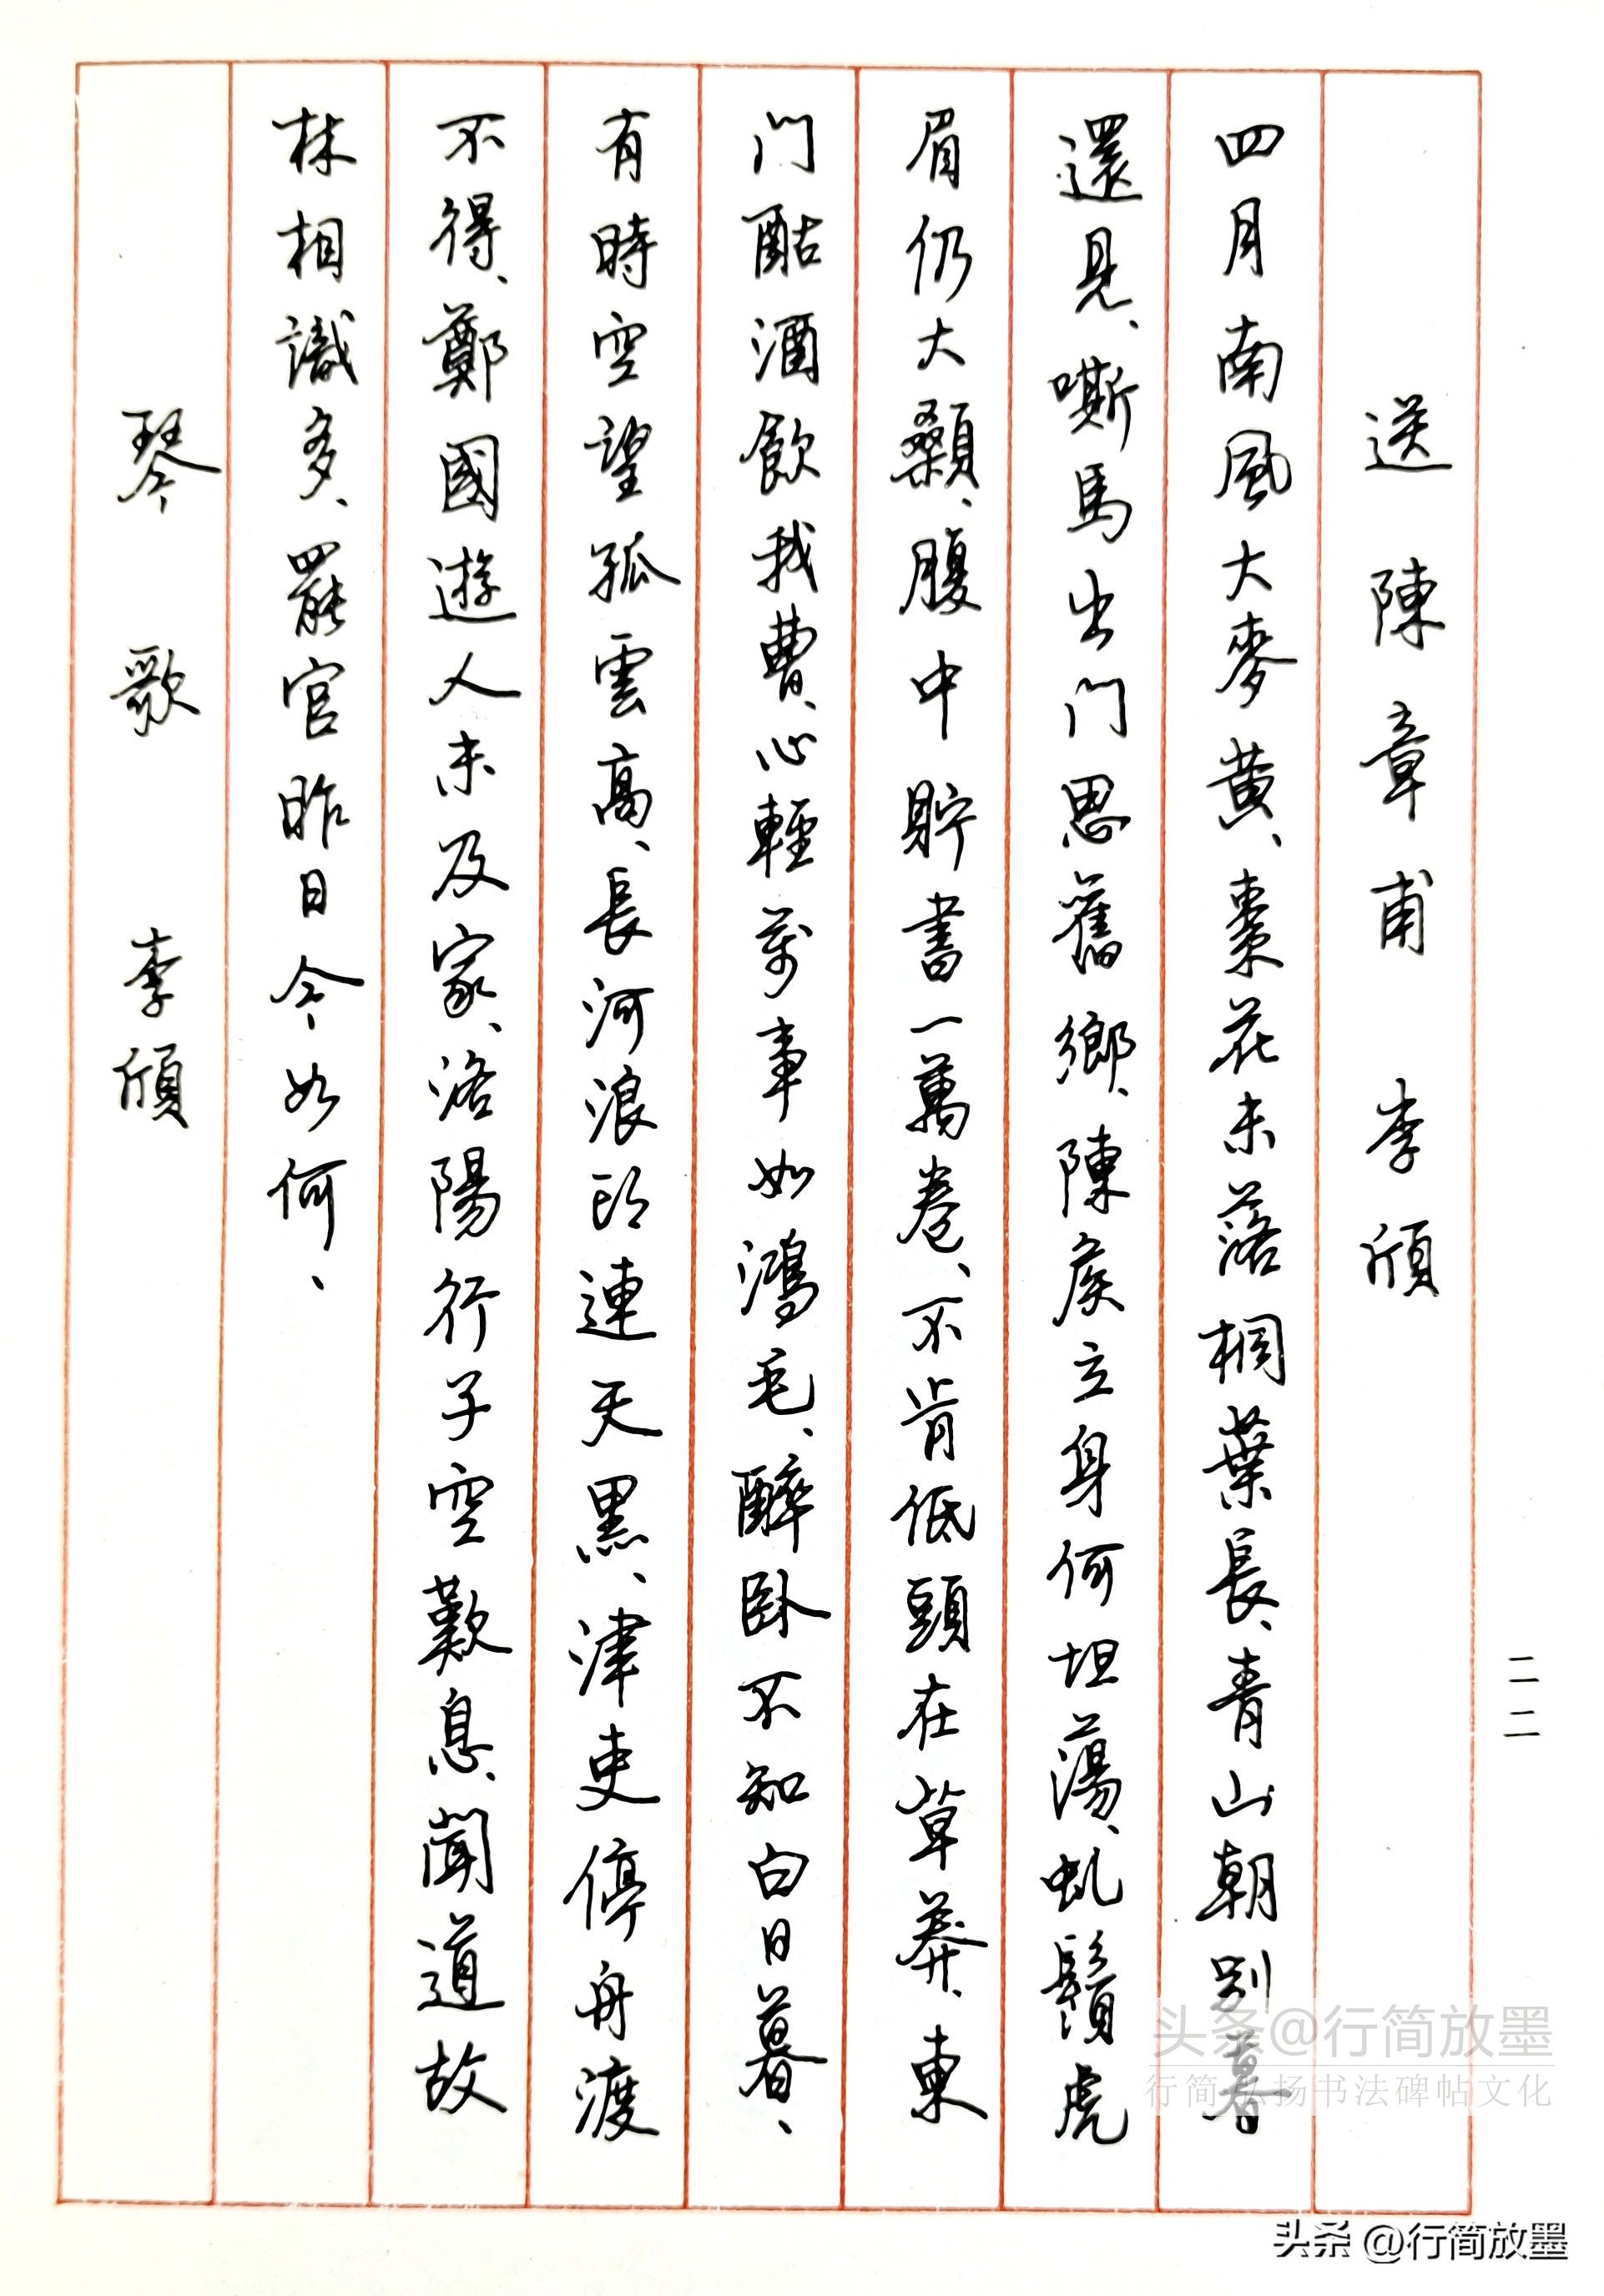 送陳章甫 李頎
四月南風大麥黃、棗花未落桐葉長、青山朝別暮
還見、嘶馬出门思舊鄉、陳侯立身何坦蕩、虬鬚虎
眉仍大顙、腹中貯書一萬卷、不肯低頭在草莽、東
门酤酒飲我曹、心輕萬事如鴻毛、醉卧不知白日暮、
有時空望孤雲高、長河浪頭連天黑、津吏停舟渡
不得、鄭國遊人未及家、洛陽行子空歎息、聞道故
林相識多、罷官昨日今如何、
琴歌 李頎
二二
头条@行简放墨
行简弘扬书法碑帖文化
头条@行简放墨